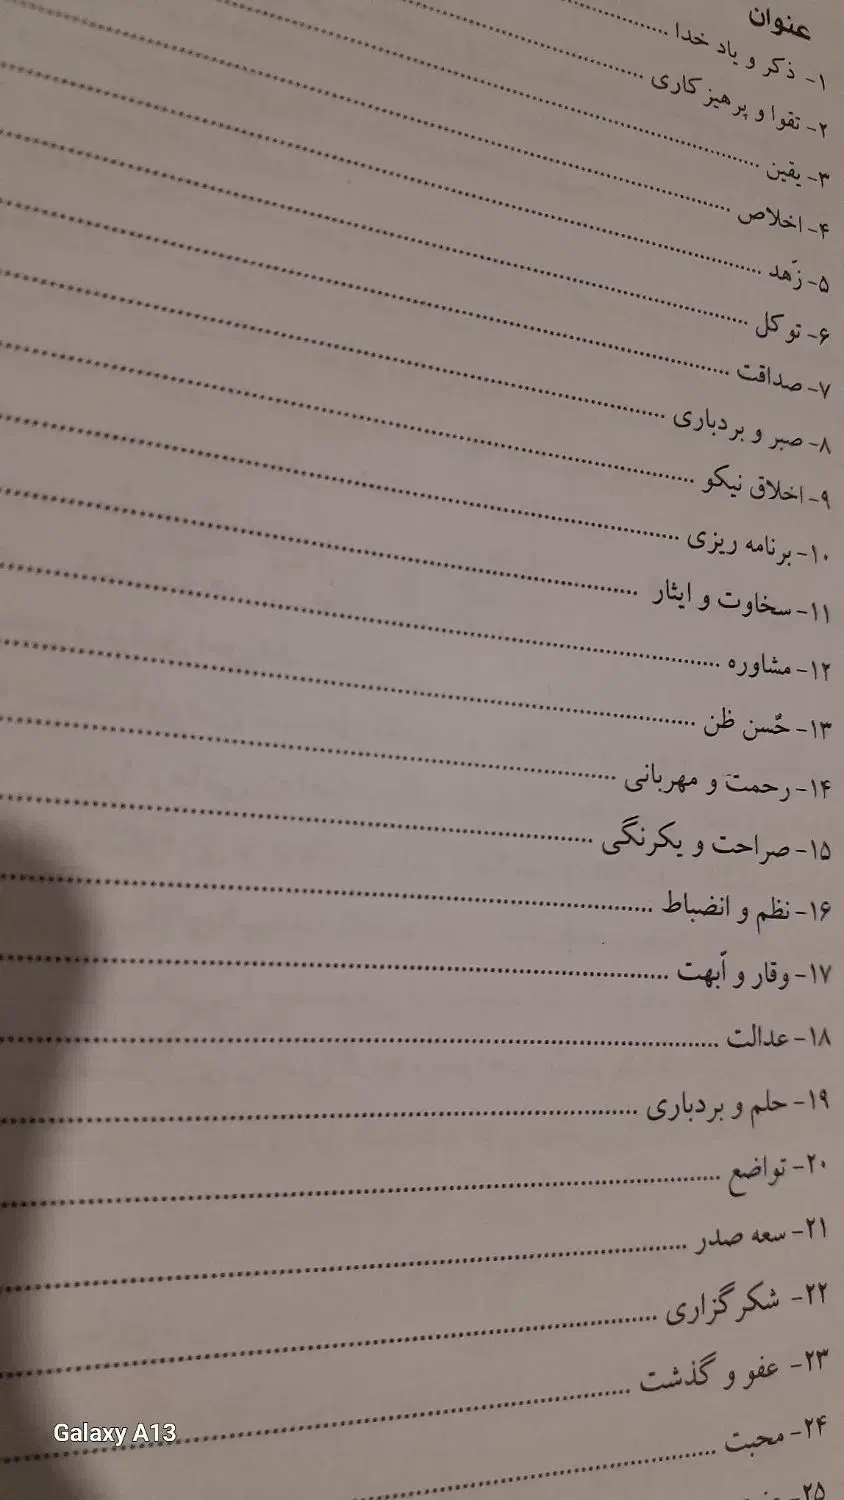 عنوان
۱- ذکر و یاد خدا
۲- تقوا و پرهیزکاری
۳- یقین
۴- اخلاص
۵- زهد
۶- توکل
۷- صداقت
۸- صبر و بردباری
۹- اخلاق نیکو
۱۰- برنامه ریزی
۱۱- سخاوت و ایثار
۱۲- مشاوره
۱۳- حُسن ظن
۱۴- رحمت و مهربانی
۱۵- صراحت و یکرنگی
۱۶- نظم و انضباط
۱۷- وقار و اَبهت
۱۸- عدالت
۱۹- حلم و بردباری
۲۰- تواضع
۲۱- سعه صدر
۲۲- شکرگزاری
۲۳- عفو و گذشت
۲۴- محبت
۲۵-
Galaxy A13